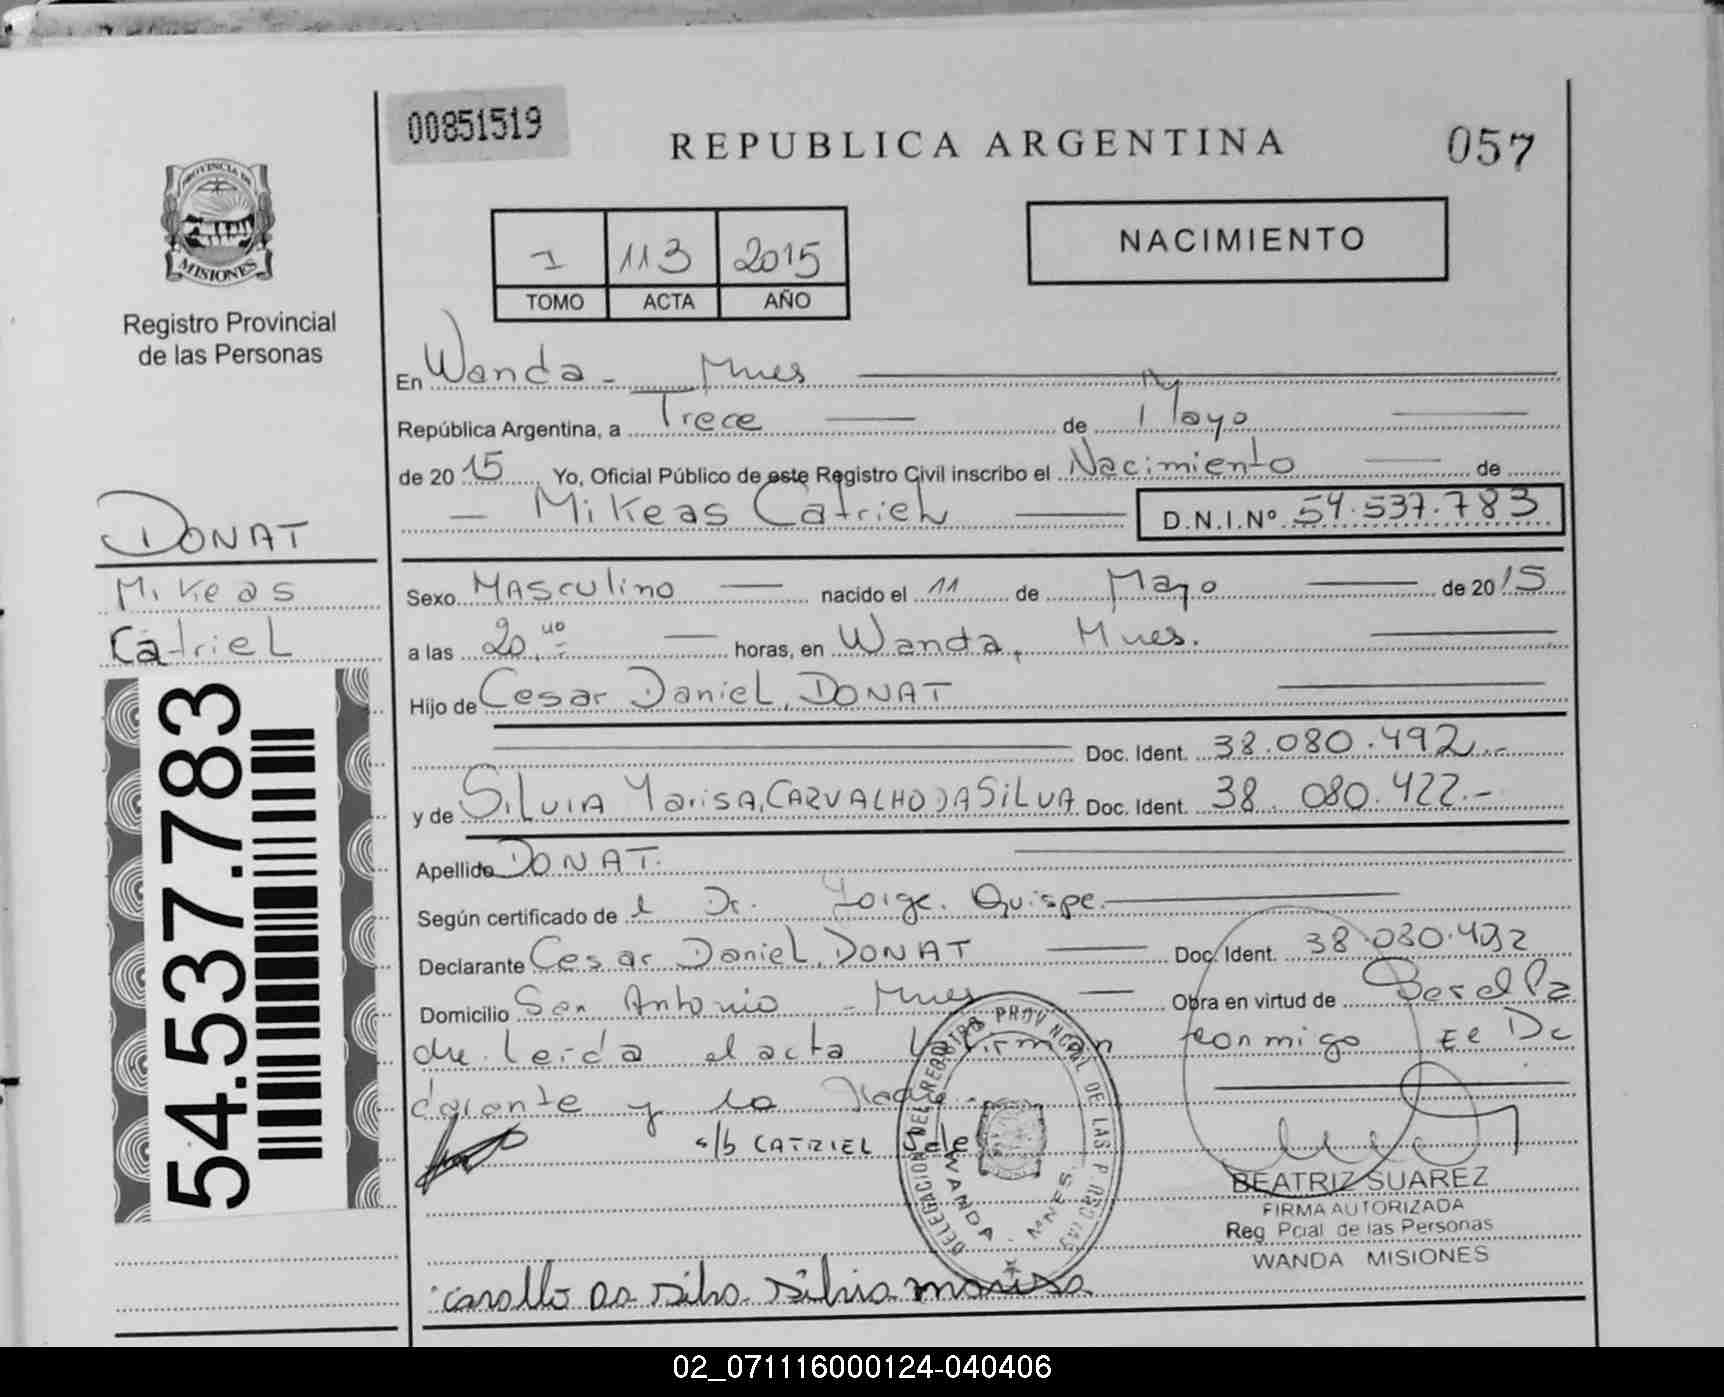 00851519
REPUBLICA ARGENTINA
057
PROVINCIA DE
MISIONES
Registro Provincial
de las Personas
1 113 2015
TOMO ACTA AÑO
NACIMIENTO
En Wanda - Mnes
República Argentina, a Trece de Mayo
de 2015 Yo, Oficial Público de este Registro Civil inscribo el Nacimiento de
Mikeas Catriel D.N.I.Nº 54.537.783
DONAT
Mikeas
Catriel
54.537.783
Sexo Masculino nacido el 11 de Mayo de 2015
a las 20, horas, en Wanda, Mnes.
Hijo de Cesar Daniel, DONAT
Doc. Ident. 38.080.492.-
y de Silvia Marisa, CARVALHO DA SILVA Doc. Ident. 38.080.422.-
Apellido DONAT.
Según certificado de el Dr. Jorge Quispe.
Declarante Cesar Daniel, DONAT Doc. Ident. 38.080.492
Domicilio San Antonio - Mnes Obra en virtud de
leida el acta la firman conmigo El De
clarante y la Madre.
s/b CATRIEL
DELEGACION DEL REGISTRO PROVINCIAL DE LAS PERSONAS
WANDA - MNES.
BEATRIZ SUAREZ
FIRMA AUTORIZADA
Reg Pcial de las Personas
WANDA MISIONES
silvia marisa
02_071116000124-040406